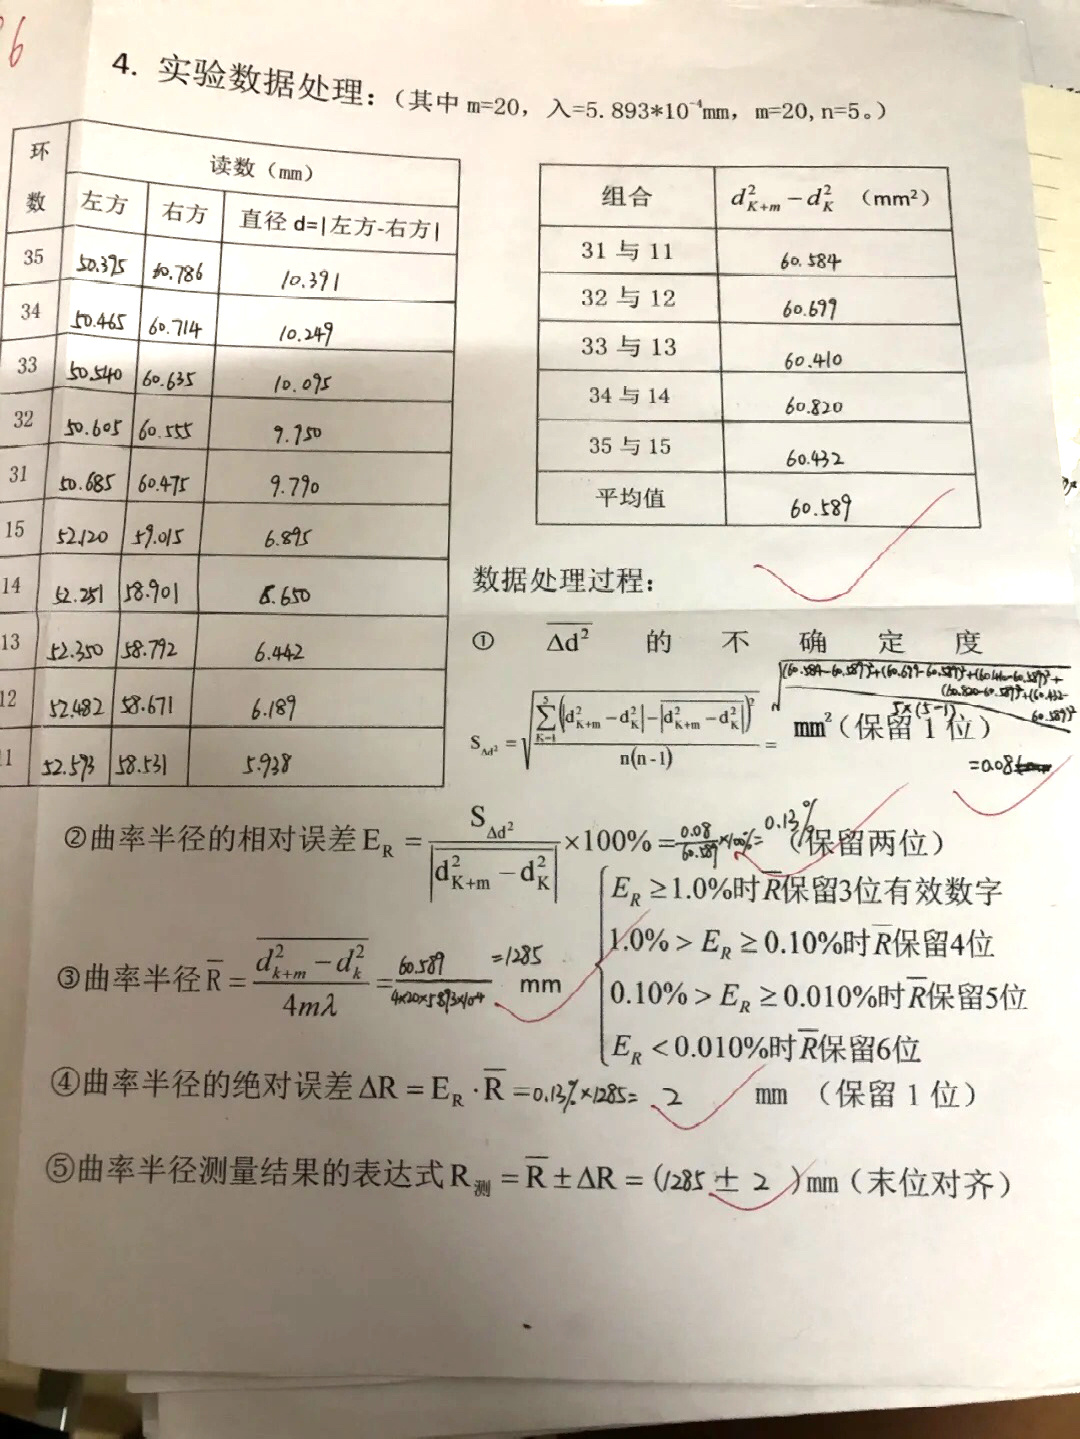 4. 实验数据处理：（其中 m=20， 入=5.893*10⁻⁴mm， m=20,n=5。）
环数 读数（mm）
左方 右方 直径 d=|左方-右方|
35 50.395 60.786 10.391
34 50.465 60.714 10.249
33 50.540 60.635 10.095
32 50.605 60.555 9.950
31 50.685 60.475 9.790
15 52.120 59.015 6.895
14 52.251 58.901 6.650
13 52.350 58.792 6.442
12 52.482 58.671 6.189
11 52.593 58.531 5.938
组合 d²_{K+m}－d²_K （mm²）
31 与 11 60.584
32 与 12 60.699
33 与 13 60.410
34 与 14 60.820
35 与 15 60.432
平均值 60.589
数据处理过程：
① \overline{Δd²} 的 不 确 定 度
S_{Δd²} = √(∑_{K=1}^{5}(|d²_{K+m}－d²_K|－|\overline{d²_{K+m}－d²_K}|)² / n(n-1)) = √(((60.584-60.589)²+(60.699-60.589)²+(60.410-60.589)²+(60.820-60.589)²+(60.432-60.589)²) / 5×(5-1)) mm²（保留 1 位）
=0.08
②曲率半径的相对误差 E_R = S_{Δd²} / |\overline{d²_{K+m}－d²_K}| ×100% = 0.08/60.589 ×100%= 0.13% （保留两位）
E_R ≥1.0%时\overline{R}保留3位有效数字
1.0% > E_R ≥ 0.10%时\overline{R}保留4位
0.10% > E_R ≥ 0.010%时\overline{R}保留5位
E_R < 0.010%时\overline{R}保留6位
③曲率半径 \overline{R} = \overline{d²_{k+m}－d²_k} / 4mλ = 60.589 / 4×20×5.893×10⁻⁴ =1285 mm
④曲率半径的绝对误差 ΔR = E_R · \overline{R} =0.13%×1285= 2 mm （保留 1 位）
⑤曲率半径测量结果的表达式 R_测 = \overline{R} ± ΔR = (1285 ± 2 )mm（末位对齐）